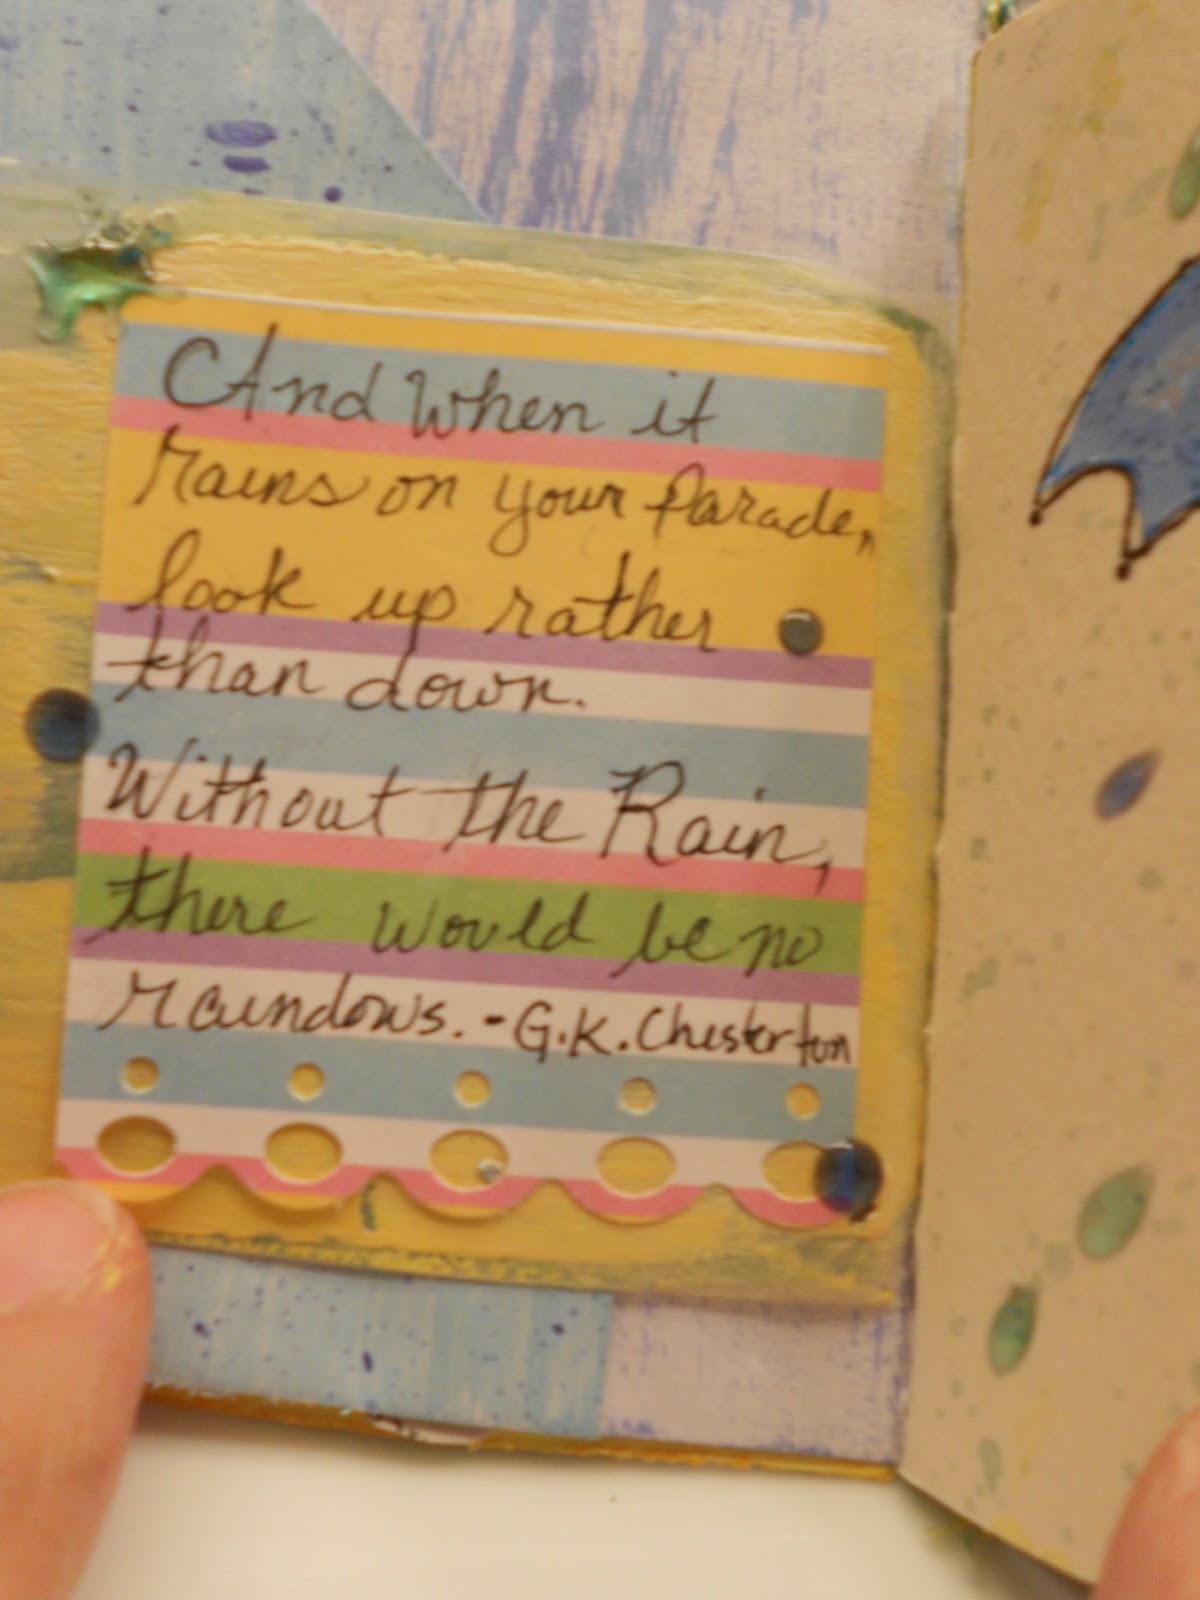 And When it
rains on your Parade,
look up rather
than down.
Without the Rain,
there would be no
raindows. - G.K. Chesterton